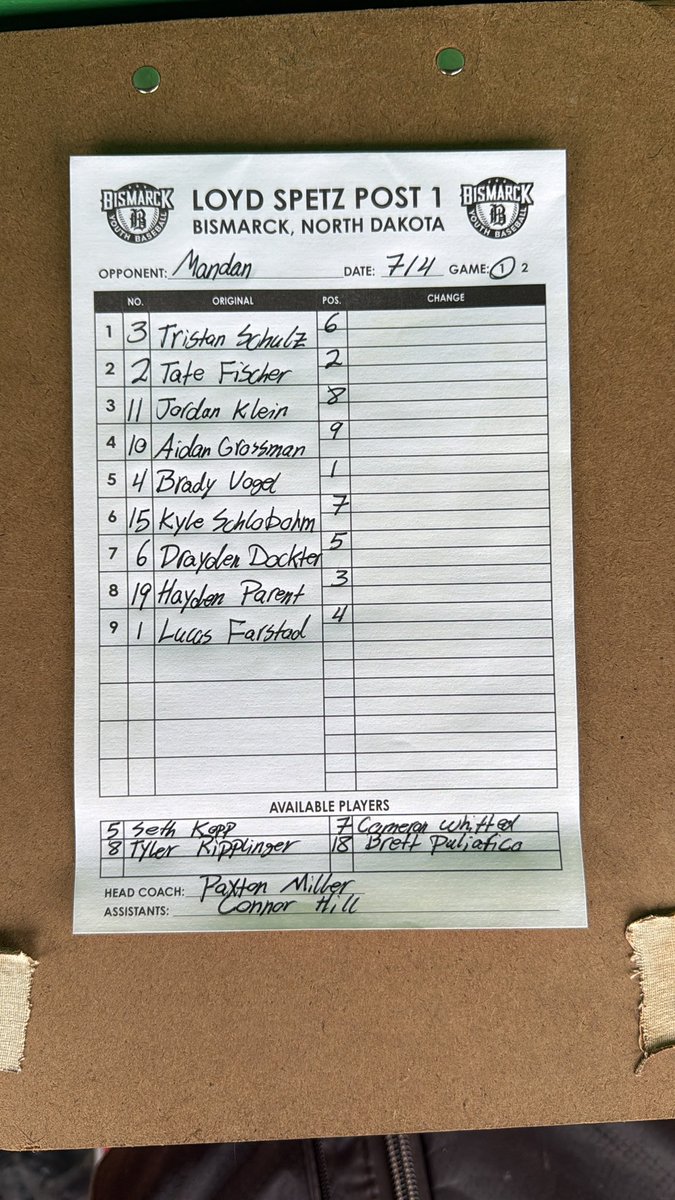 BISMARCK B YOUTH BASEBALL LOYD SPETZ POST 1 BISMARCK B YOUTH BASEBALL
BISMARCK, NORTH DAKOTA
OPPONENT: Mandan DATE: 7/4 GAME: 1 2
NO. ORIGINAL POS. CHANGE
1 3 Tristan Schulz 6
2 2 Tate Fischer 2
3 11 Jordan Klein 8
4 10 Aidan Grossman 9
5 4 Brady Vogel 1
6 15 Kyle Schlobohm 7
7 6 Drayden Dockter 5
8 19 Hayden Parent 3
9 1 Lucas Farstad 4
AVAILABLE PLAYERS
5 Seth Kopp 7 Cameron Whitted
8 Tyler Kipplinger 18 Brett Puliafico
HEAD COACH: Paxton Miller
ASSISTANTS: Connor Hill